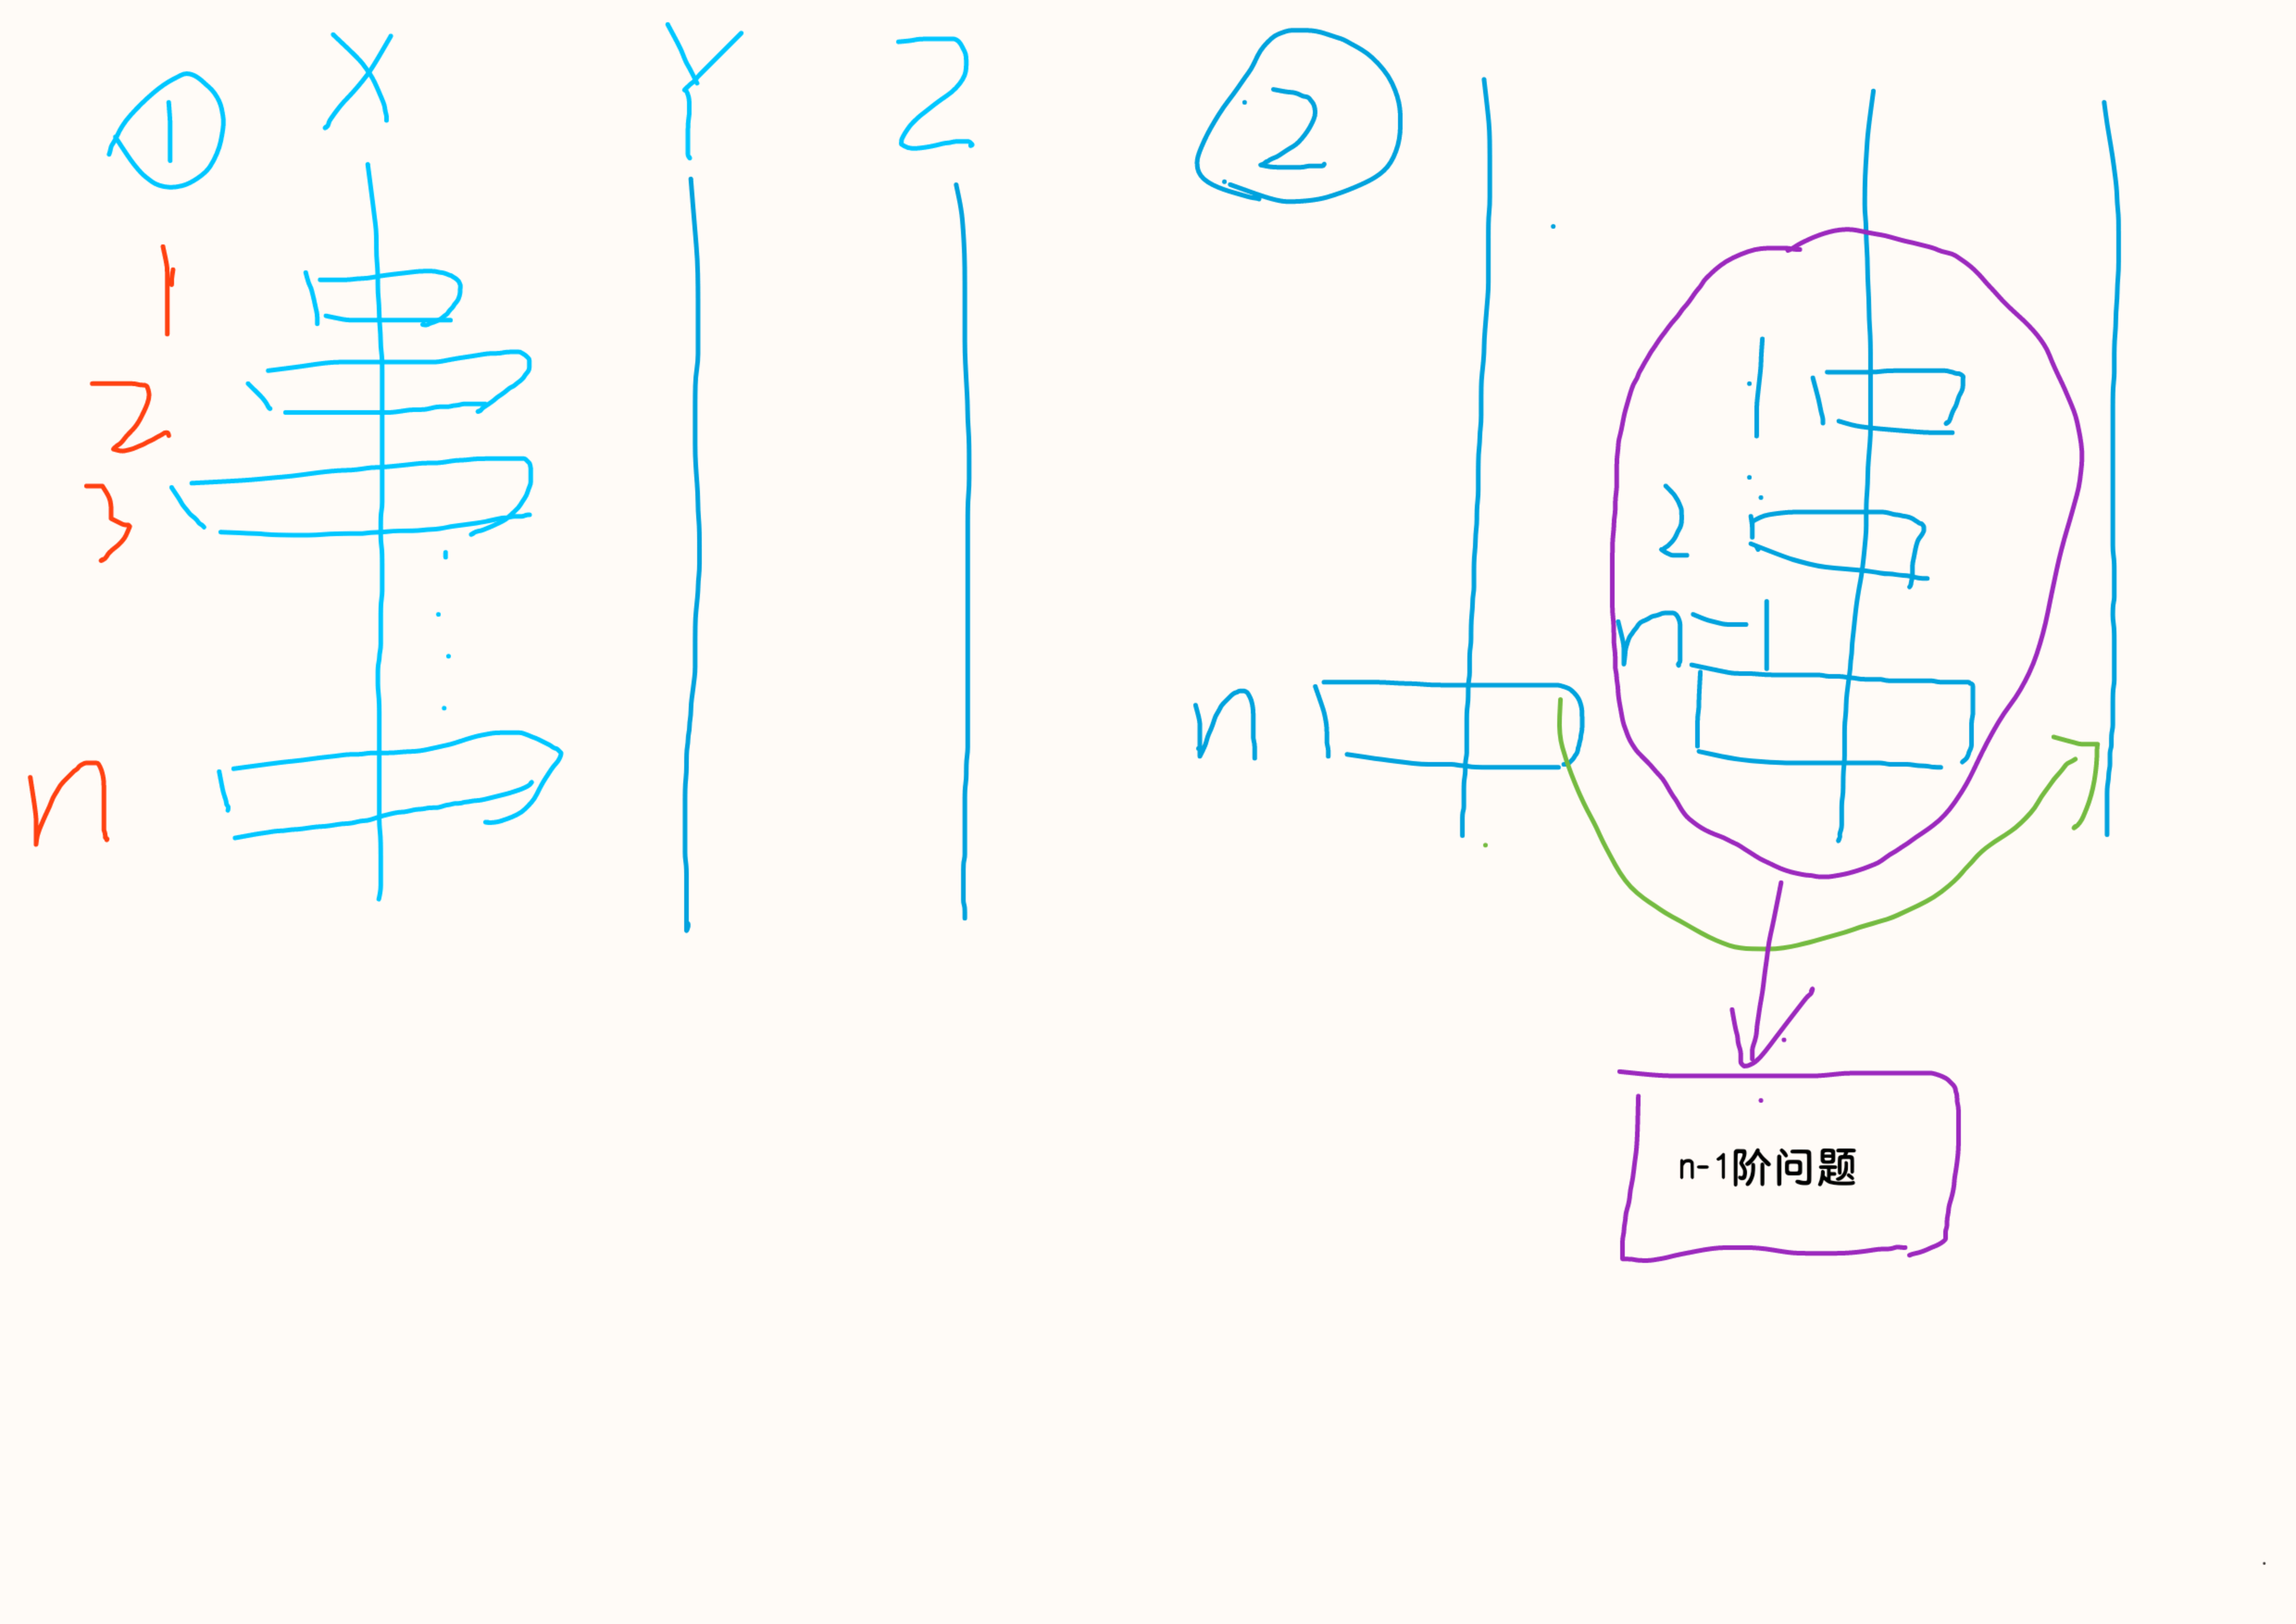 ① X Y Z
1
2
3
n
②
1
2
n-1
n
n-1阶问题